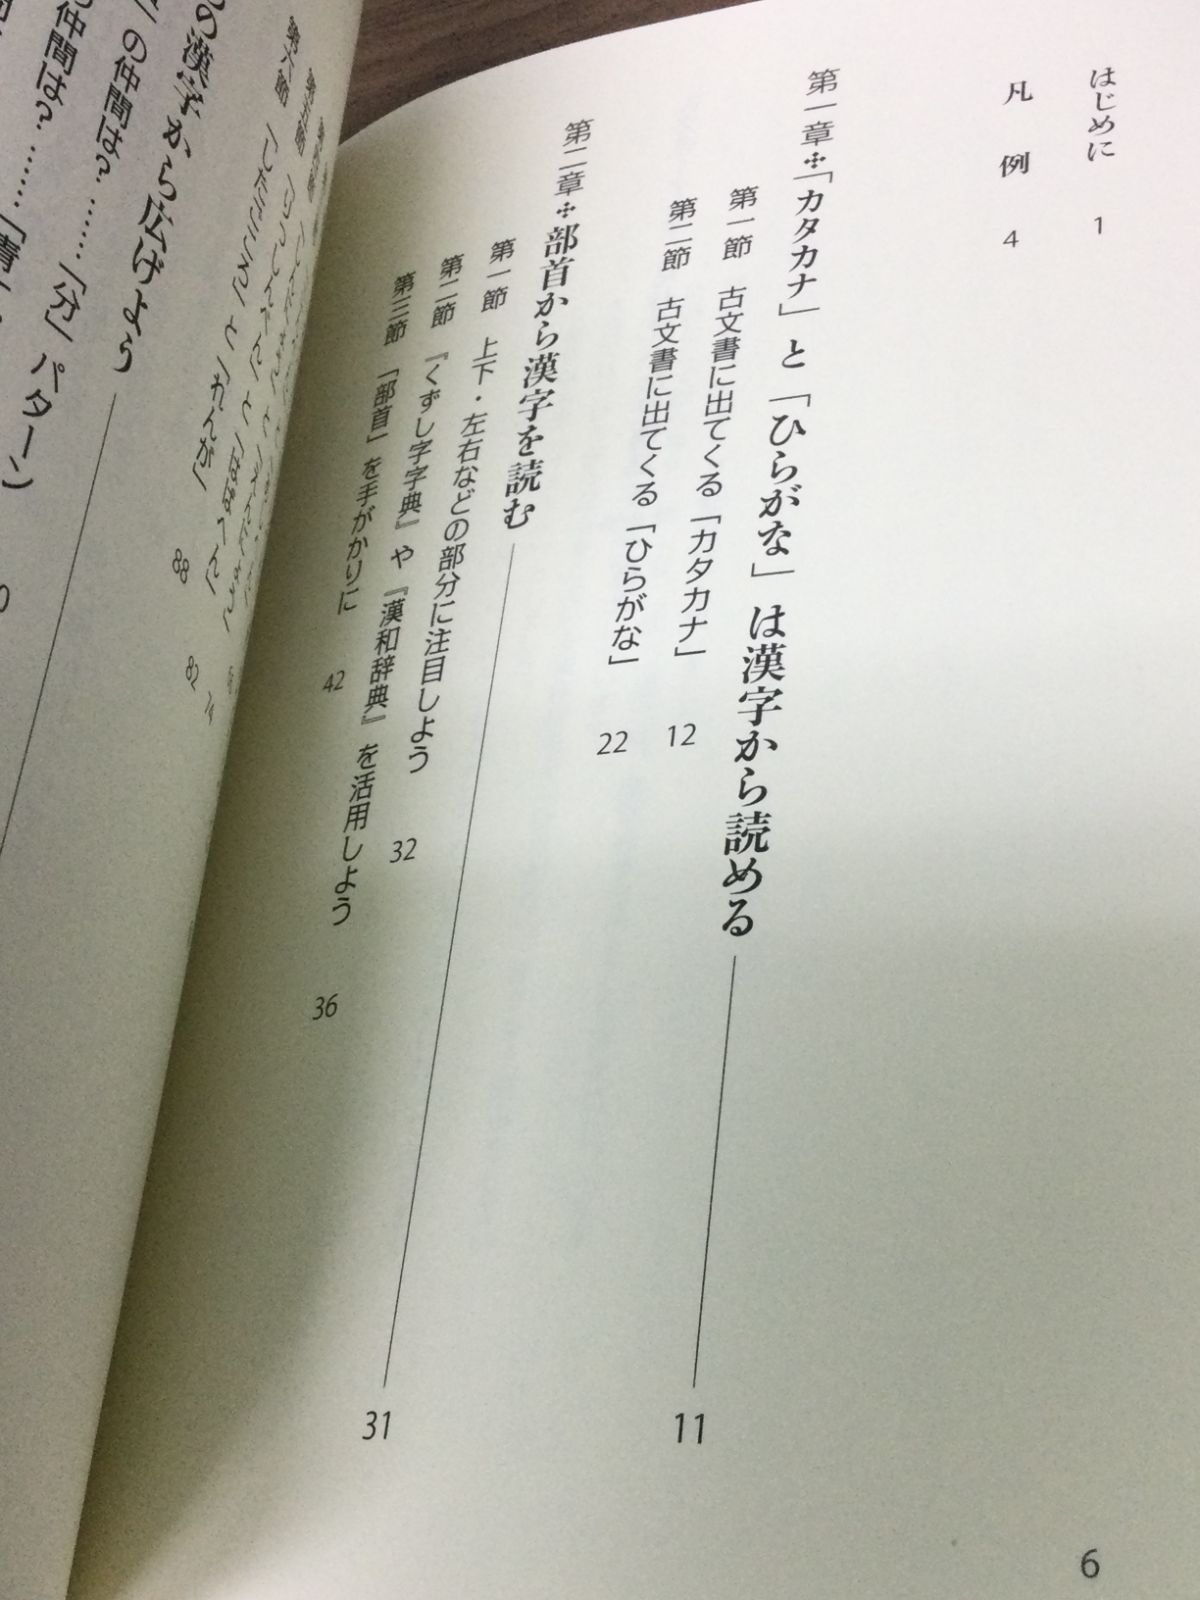 はじめに 1
凡例 4
第一章✣「カタカナ」と「ひらがな」は漢字から読める 11
第一節 古文書に出てくる「カタカナ」 12
第二節 古文書に出てくる「ひらがな」 22
第二章✣部首から漢字を読む 31
第一節 上下・左右などの部分に注目しよう 32
第二節 『くずし字字典』や『漢和辞典』を活用しよう 36
第三節 「部首」を手がかりに 42
6
74
第五節 「りっしんべん」と「はばへん」 82
第六節 「したごころ」と「れんが」 88
の漢字から広げよう
の仲間は?……「分」パターン
の仲間は?……「青」